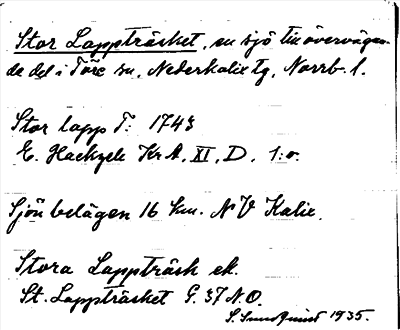 Stor Lappträsket, en sjö till övervägan-
de del i Töre sn, Nederkalix tg, Norrb. l.
Stor lapp T: 1743
E. Hackzell KrA, XI, D, 1:o.
Sjön belägen 16 km. NV Kalix.
Stora Lappträsk ek.
St. Lappträsket G. 37 N.O.
S. Sundquist 1935.